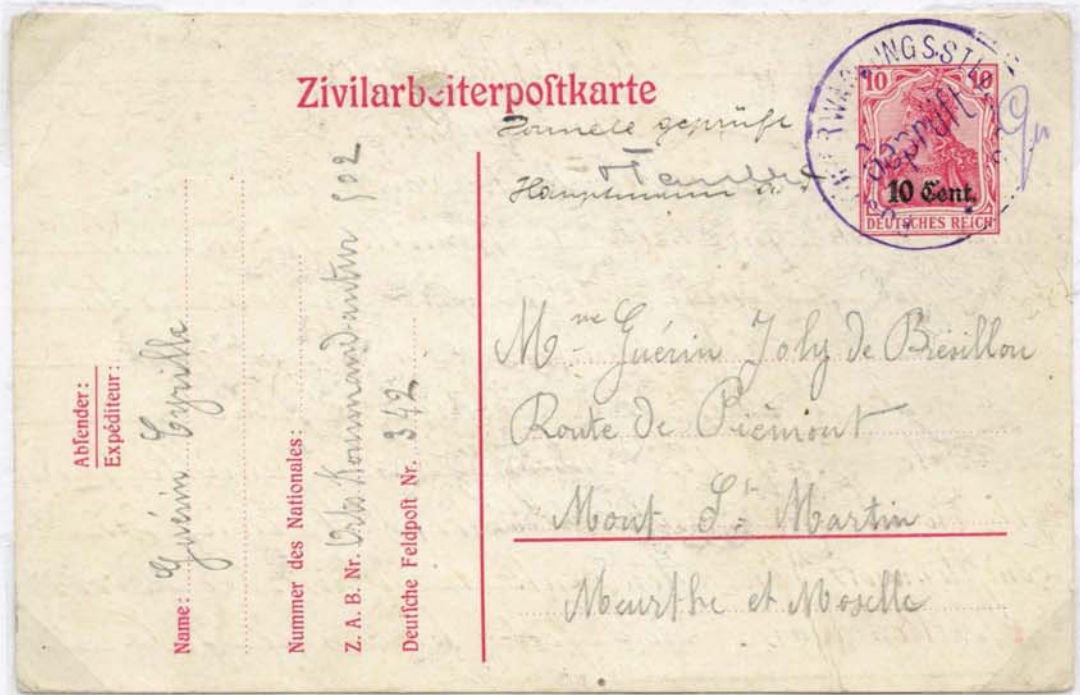 Zivilarbeiterpostkarte
geprüft
Hauptmann
10 10
10 Cent.
DEUTSCHES REICH
Geprüft
Absender:
Expéditeur:
Name: Guérin Cyrille
Nummer des Nationales:
Z. A. B. Nr. Orts Kommandantur 502
Deutsche Feldpost Nr. 342
Mme Guérin Joly de Brésillon
Route de Piémont
Mont St Martin
Meurthe et Moselle